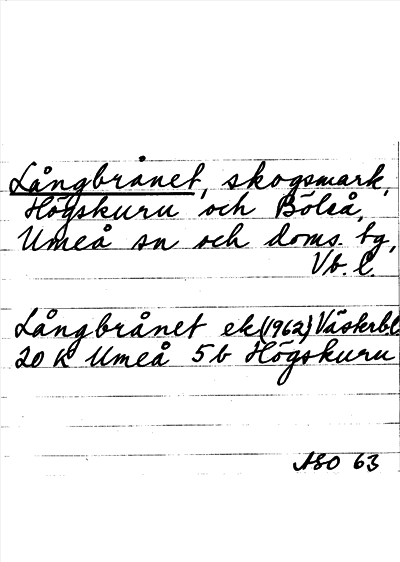 Långbrånet, skogsmark,
Högskuru och Bölså,
Umeå sn och doms. bg,
Vb. l.
Långbrånet ek (1962) Västerb.l
20 K Umeå 5b Högskuru
ASO 63